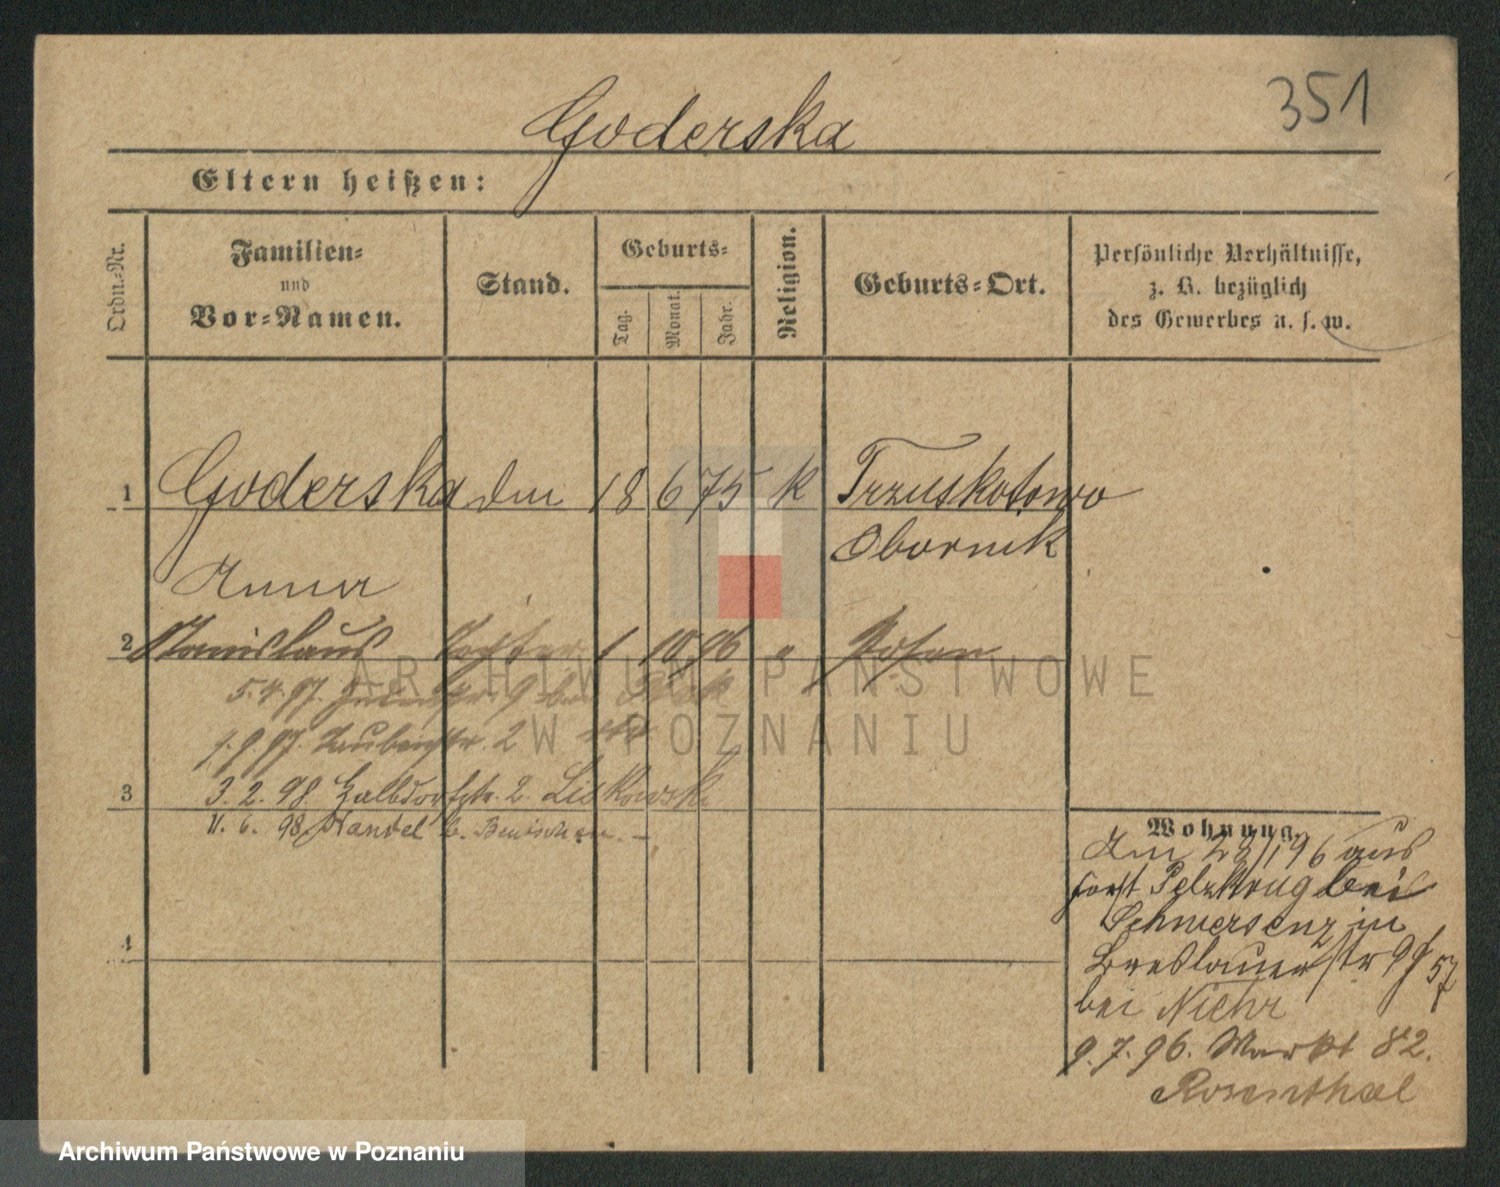 351
Goderska
Eltern heißen:
Ordn.-Nr.
Familien-
und
Vor-Namen.
Stand.
Geburts-
Tag.
Monat.
Jahr.
Religion.
Geburts-Ort.
Persönliche Verhältnisse,
z. B. bezüglich
des Gewerbes u. s. w.
1 Goderska 18 6 75 K Trzuskotowo
Obornik
Anna
2 Stanislaus 1 10 96 " Posen
5.4.97. 9 bei
1.9.97. 2
3
3.2.98. Halbdorfstr. 2. Liskowski
11. 6. 98 Handel b. Bentschen
Wohnung.
Am 28/1 96 aus
Forst Pelzkrug bei
Schwersenz in
Breslauerstr 9 57
bei Niehr
4
9.7.96. Markt 82.
Rosenthal
ARCHIWUM PAŃSTWOWE
W POZNANIU
Archiwum Państwowe w Poznaniu